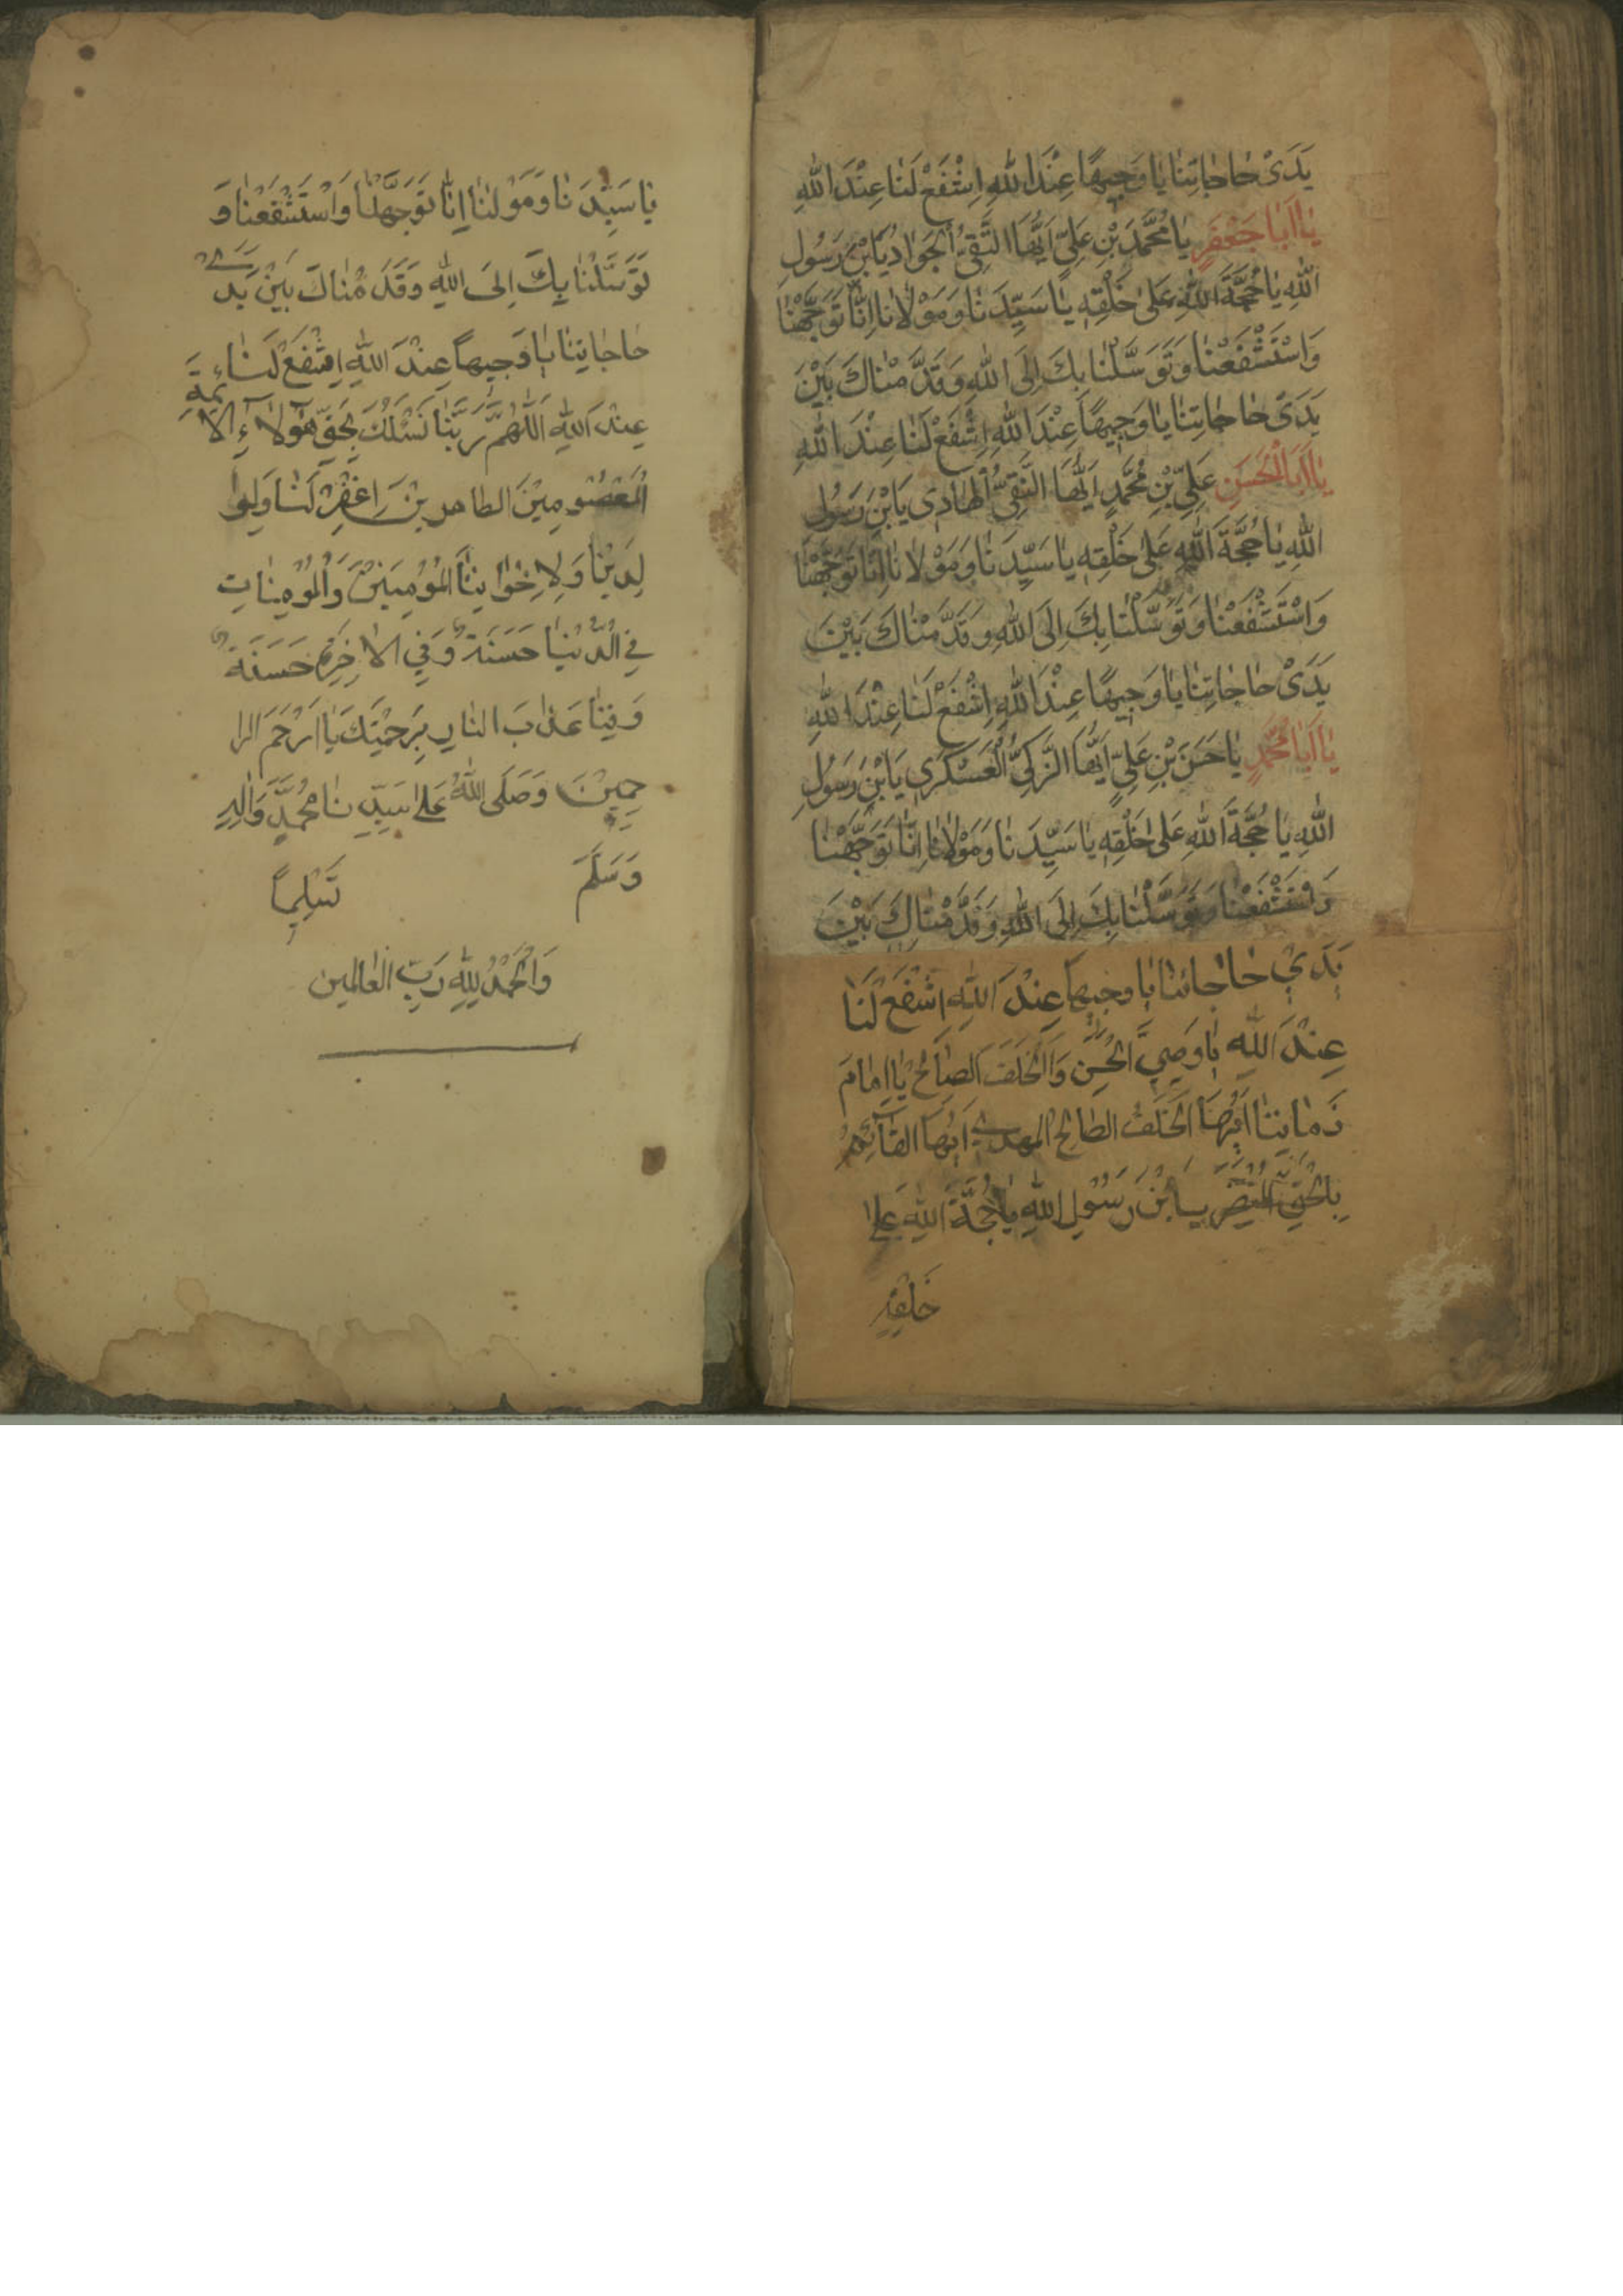 يَدَىْ حٰاجٰاتِنٰا يٰا وَجٖيهًا عِنْدَ اللّٰهِ اِشْفَعْ لَنٰا عِنْدَ اللّٰهِ
يٰا اَبٰا جَعْفَرٍ يٰا مُحَمَّدَ بْنِ عَلِىٍّ اَيُّهَا التَّقِىُّ الْجَوٰادُ يَابْنَ رَسُولِ
اللّٰهِ يٰا حُجَّةَ اللّٰهِ عَلىٰ خَلْقِهٖ يٰا سَيِّدَنٰا وَمَوْلٰانٰا اِنّٰا تَوَجَّهْنٰا
وَاسْتَشْفَعْنٰا وَتَوَسَّلْنٰا بِكَ اِلَى اللّٰهِ وَقَدَّمْنٰاكَ بَيْنَ
يَدَىْ حٰاجٰاتِنٰا يٰا وَجٖيهًا عِنْدَ اللّٰهِ اِشْفَعْ لَنٰا عِنْدَ اللّٰهِ
يٰا اَبَا الْحَسَنِ عَلِىِّ بْنِ مُحَمَّدٍ اَيُّهَا النَّقِىُّ الْهٰادٖى يَابْنَ رَسُولِ
اللّٰهِ يٰا حُجَّةَ اللّٰهِ عَلىٰ خَلْقِهٖ يٰا سَيِّدَنٰا وَمَوْلٰانٰا اِنّٰا تَوَجَّهْنٰا
وَاسْتَشْفَعْنٰا وَتَوَسَّلْنٰا بِكَ اِلَى اللّٰهِ وَقَدَّمْنٰاكَ بَيْنَ
يَدَىْ حٰاجٰاتِنٰا يٰا وَجٖيهًا عِنْدَ اللّٰهِ اِشْفَعْ لَنٰا عِنْدَ اللّٰهِ
يٰا اَبٰا مُحَمَّدٍ يٰا حَسَنَ بْنِ عَلِىٍّ اَيُّهَا الزَّكِىُّ الْعَسْكَرٖى يَابْنَ رَسُولِ
اللّٰهِ يٰا حُجَّةَ اللّٰهِ عَلىٰ خَلْقِهٖ يٰا سَيِّدَنٰا وَمَوْلٰانٰا اِنّٰا تَوَجَّهْنٰا
وَاسْتَشْفَعْنٰا وَتَوَسَّلْنٰا بِكَ اِلَى اللّٰهِ وَقَدَّمْنٰاكَ بَيْنَ
يَدَيْ حٰاجاتنٰا يٰا وجيهاً عِنْدَ اللّٰهِ اشْفَع لَنٰا
عِنْدَ اللّٰهِ يٰا وَصِيَّ الْحَسَن وَالْخَلَفَ الصّٰالِحُ يٰا اِمٰامَ
زَمٰانِنٰا اَيُّهَا الْخَلَفُ الصالِح المهدي اَيُّهَا القٰائِمُ
بِالْحَقِّ المُنْتَظَرُ يابْنَ رَسُوْلِ اللّٰهِ يٰا حُجَّةَ اللّٰهِ عَلىٰ
خَلْقِهِ
يٰا سَيِّدَنٰا وَمَوْلٰنٰا اِنّٰا تَوَجَّهْنٰا وَاسْتَشْفَعْنٰا وَ
تَوَسَّلْنٰا بِكَ اِلَى اللّٰهِ وَقَدَّمْنٰاكَ بَيْنَ يَدَے
حٰاجٰاتِنٰا يٰا وَجيهاً عِنْدَ اللّٰهِ اِشْفَعْ لَنٰا
عِنْدَ اللّٰهِ اَللّٰهُمَّ رَبَّنٰا نَسْئَلُكَ بِحَقِّ هٰٓؤلاءِ الا ئمة
الْمَعْصُومِيْنَ الطاهريْنَ اِغْفِرْ لَنٰا وَلِوا
لِدَيْنٰا وَلِاِخْوٰانِنٰا الْمُؤمِنيْنَ وَالْمُؤمِنٰاتِ
فِي الدُّنْيٰا حَسَنَةً وَفِي الاٰخِرَةِ حَسَنَةً
وَقِنٰا عَذٰابَ النٰارِ بِرَحْمَتِكَ يٰا اَرْحَمَ الرا
حِمِيْنَ وَصَلَى اللّٰهُ عَلىٰ سَيِّدِنٰا مُحَمَّدٍ وَاٰلِهِ
وَسَلَّمَ تَسْلِيماً
وَالْحَمْدُ لِلّٰهِ رَبِّ الْعٰالمين